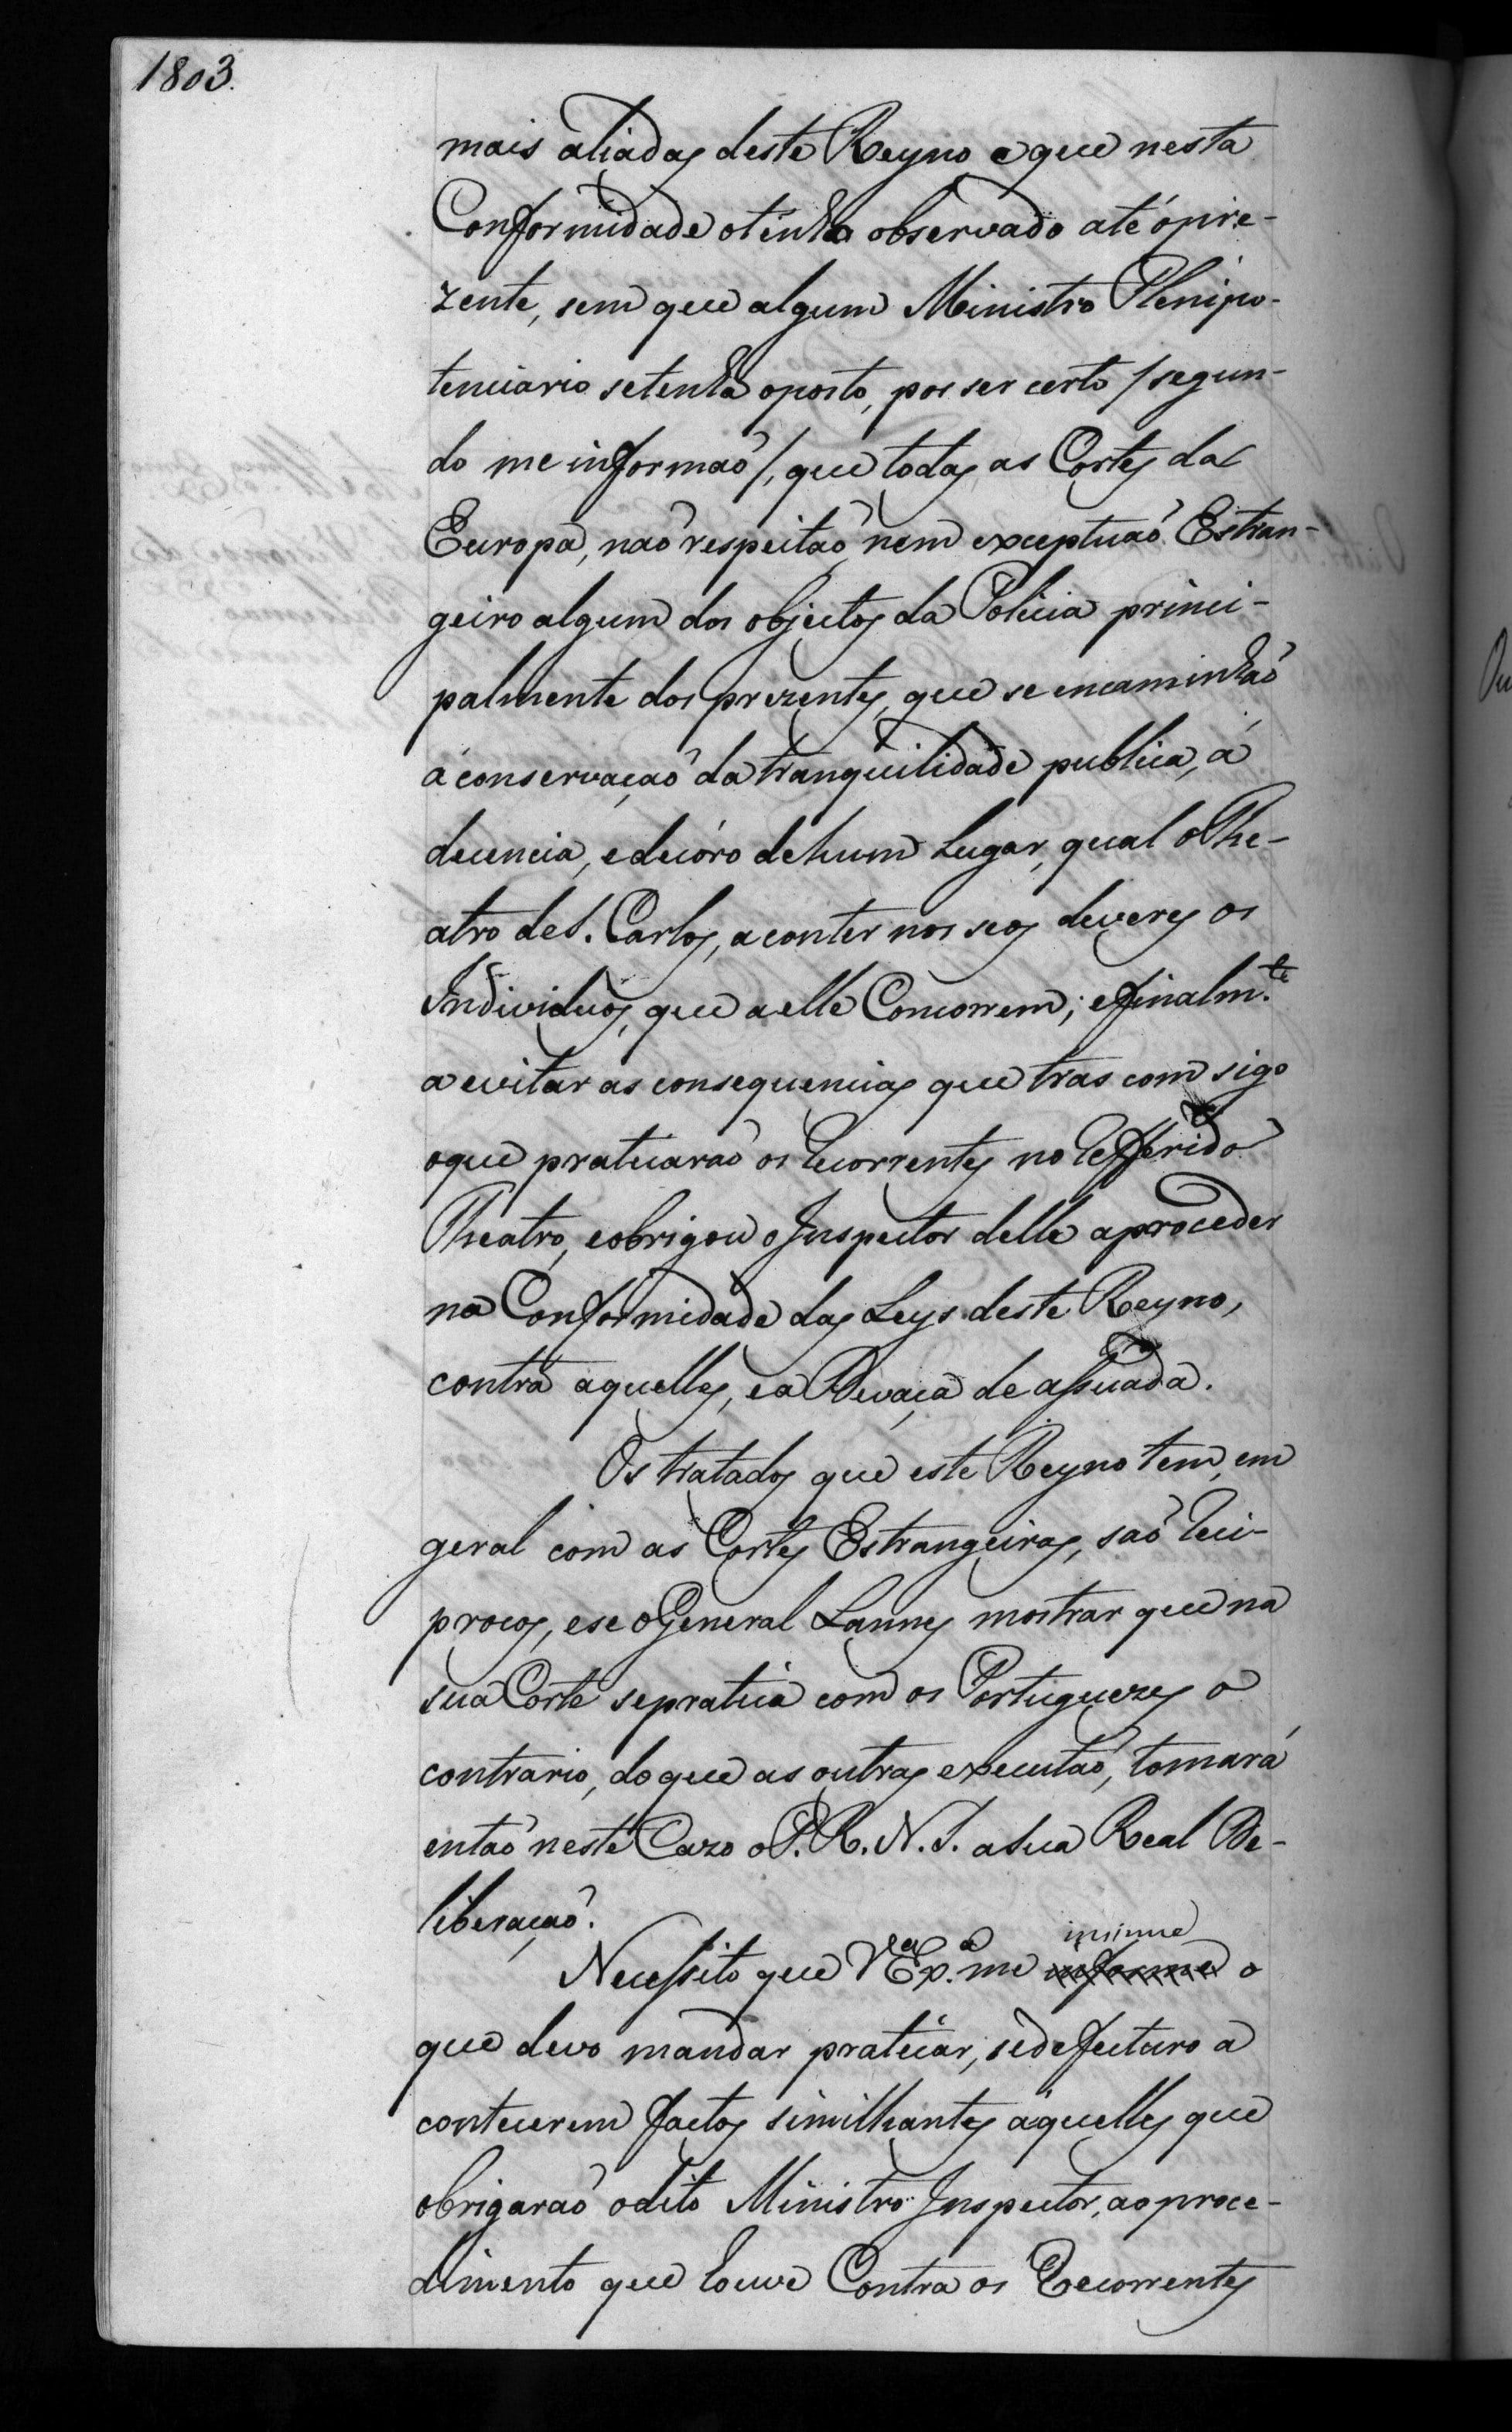 1803.
mais aliadas deste Reyno e que nesta
Conformidade o tenha observado até o pre-
zente, sem que algum Ministro Plenipo-
tenciario se tenha oposto, por ser certo /segun-
do me informaõ/, que todas as Cortes da
Europa, naõ respeitaõ, nem exceptuaõ Estran-
geiro algum dos objectos da Policia princi-
palmente dos prezentes, que se encaminhaõ
á conservaçaõ da tranquilidade publica, á
decencia, e decóro de hum Lugar, qual o The-
atro de S. Carlos, a conter nos seos deveres os
Individuos, que a elle Concorrem; e finalm.te
a evitar as consequencias que tras com sigo
o que praticaraõ os Recorrentes no Refferido
Theatro, e obrigou o Inspector delle a proceder
na Conformidade das Leys deste Reyno,
contra aquelles, e a Devaça de assuada.
Os tratados que este Reyno tem, em
geral com as Cortes Estrangeiras, saõ Reci-
procos, e se o General Lannes mostrar que na
sua Corte se pratica com os Portuguezes o
contrario, do que as outras executaõ, tomará
entaõ neste Cazo o P. R. N. S. a Sua Real De-
liberaçaõ.
Necessito que V.a Ex.a me informe insinue o
que devo mandar praticar, se de fucturo a
contecerem factos similhantes áquelles que
obrigaraõ o dito Ministro Inspector, ao proce-
dimento que houve Contra os Recorrentes